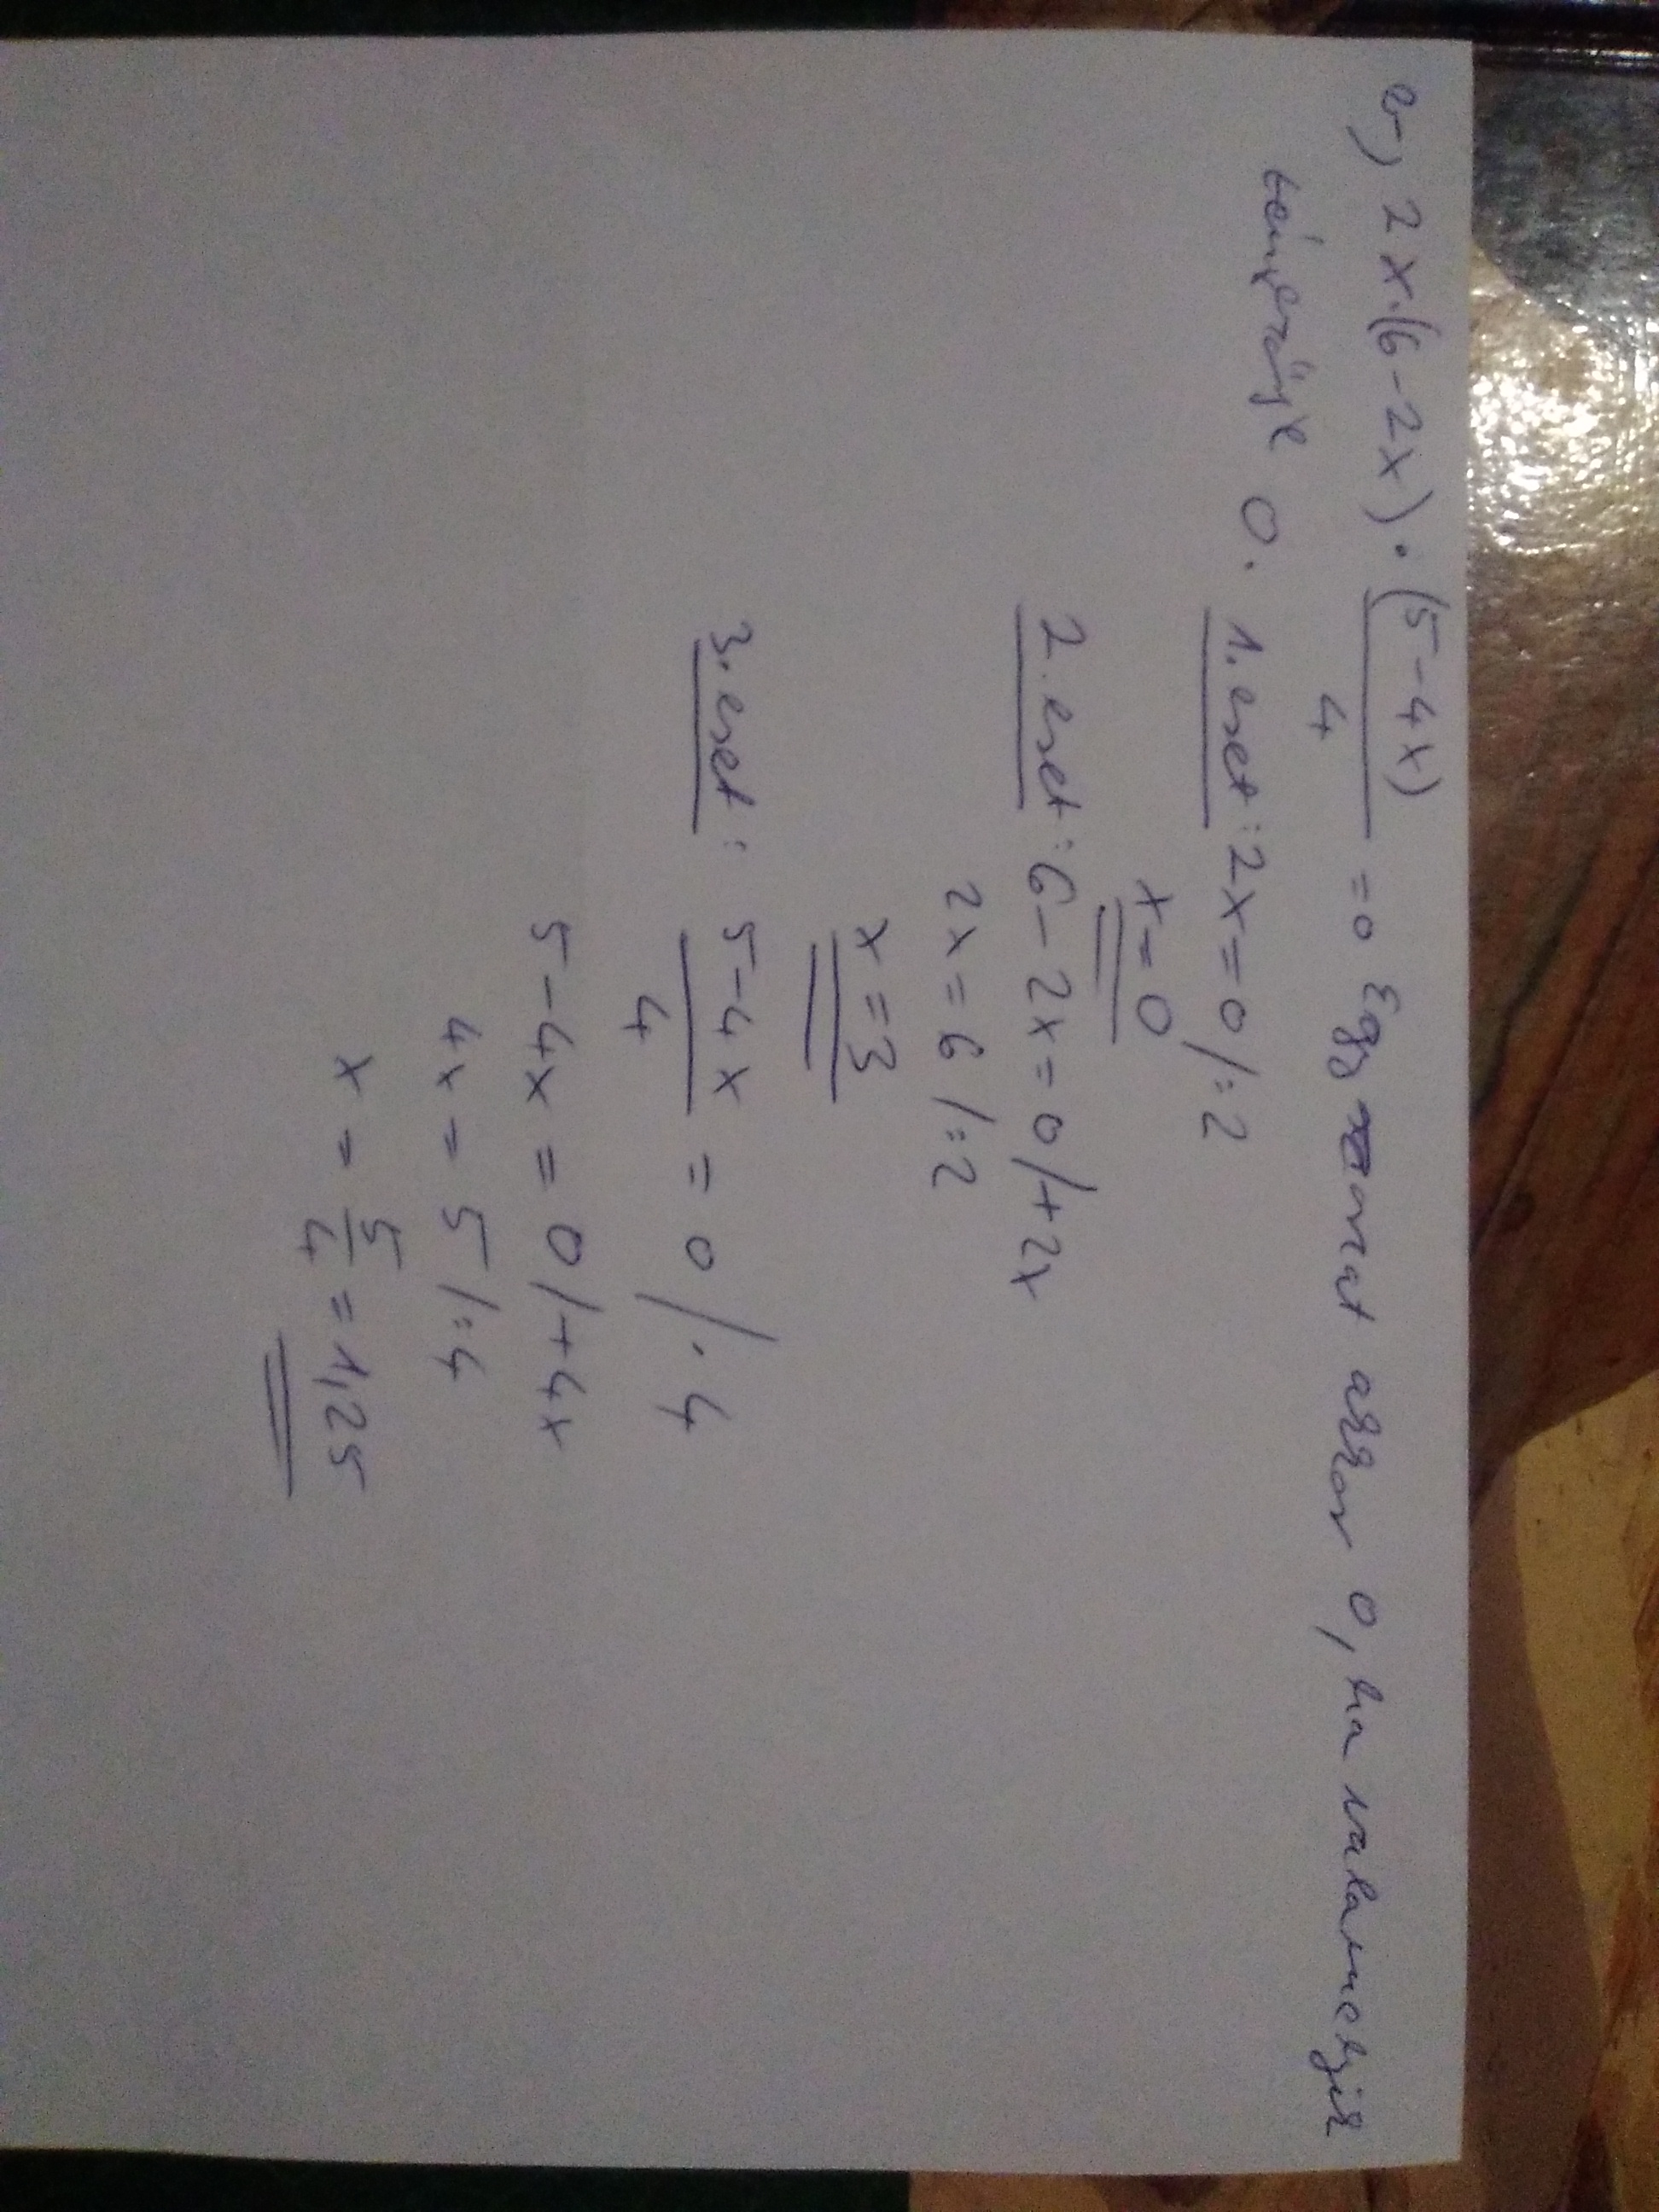 e, 2x·(6-2x)·(5-4x)/4 = 0 Egy szorzat akkor 0, ha valamelyik
tényezője 0. 1. eset: 2x=0/:2
x=0
2. eset: 6-2x=0/+2x
2x=6/:2
x=3
3. eset: 5-4x/4 = 0/·4
5-4x=0/+4x
4x=5/:4
x=5/4=1,25